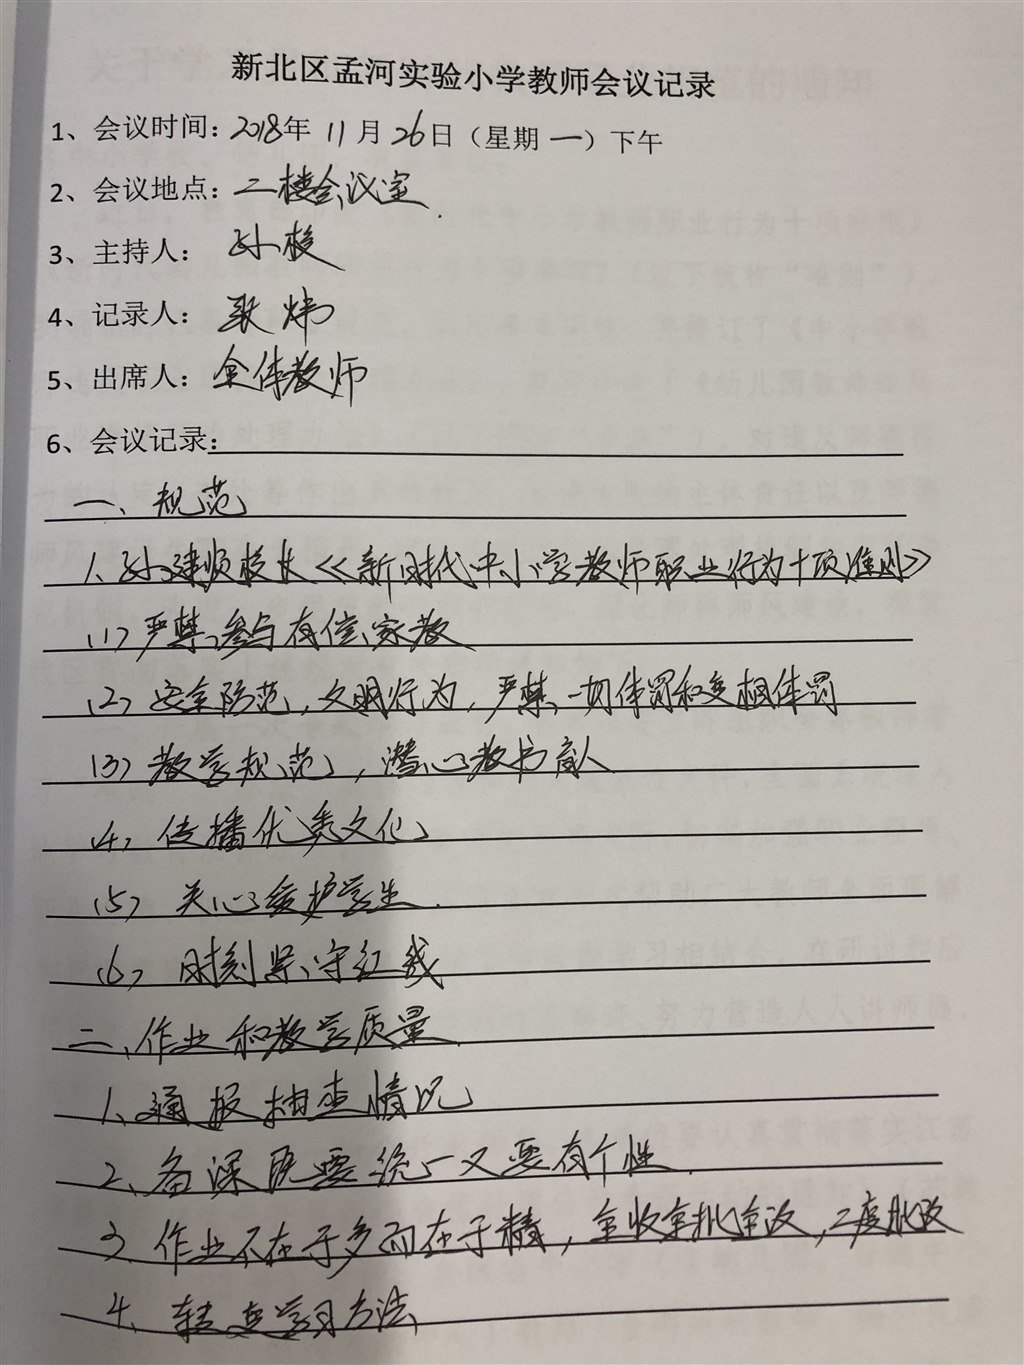 新北区孟河实验小学教师会议记录
1、会议时间：2018年 11月 26日（星期一）下午
2、会议地点：二楼会议室.
3、主持人：孙校
4、记录人：耿炜
5、出席人：全体教师
6、会议记录：
一、规范
1、孙建顺校长《新时代中小学教师职业行为十项准则》
(1) 严禁参与有偿家教
(2) 安全防范，文明行为，严禁一切体罚和变相体罚
(3) 教学规范，潜心教书育人
(4) 传播优秀文化
(5) 关心爱护学生.
(6) 时刻坚守红线
二、作业和教学质量
1、通报抽查情况
2、备课既要统一又要有个性.
3、作业不在于多而在于精，全收全批全改，二度批改
4、转变学习方法